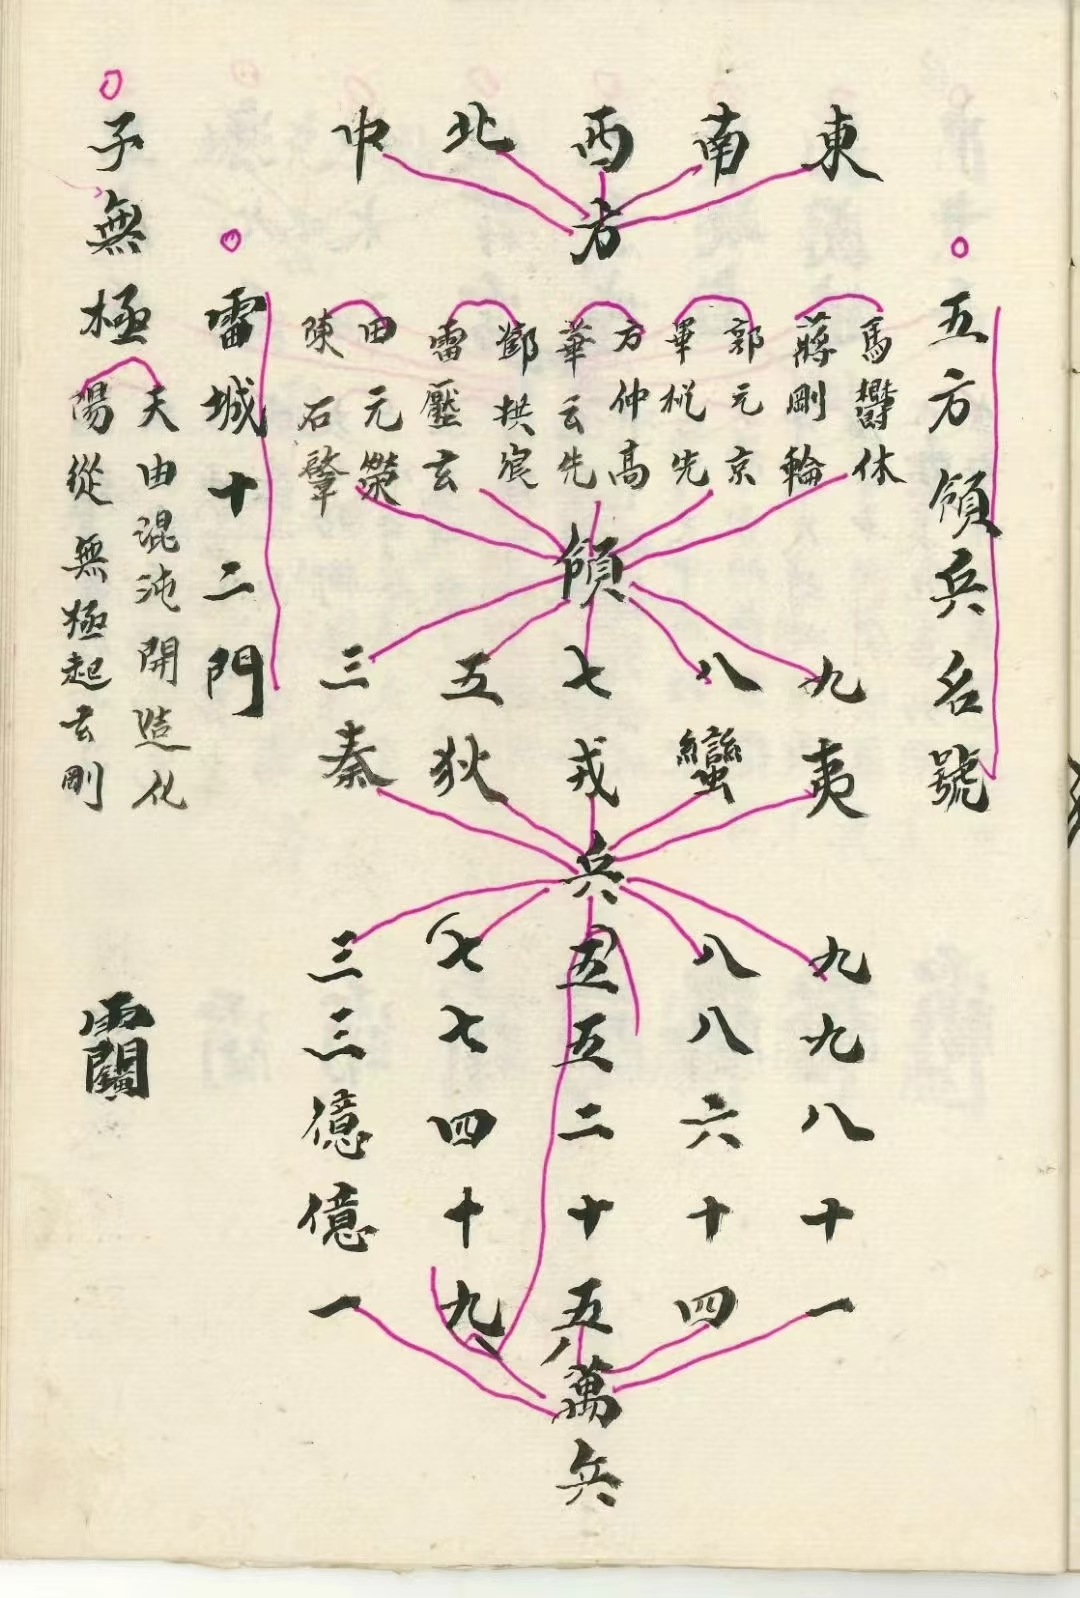 五方領兵名號
東南西北中
方
馬鬱休
蔣剛輪
郭元京
畢樅先
方仲高
華云先
鄧拱宸
雷壓玄
田元榮
陳石肇
領
九夷
八蠻
七戎
五狄
三秦
兵
九九八十一
八八六十四
五五二十五
七七四十九
三三億億一
萬兵
雷城十二門
子無極
夫由混沌開造化
陽從無極起玄剛